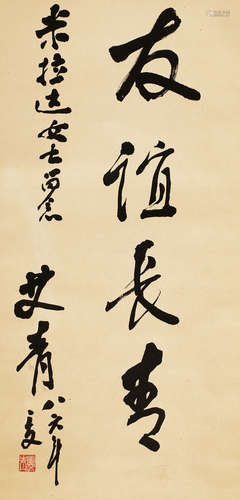 友誼長青
米拉达女士留念
艾青 八六年
夏